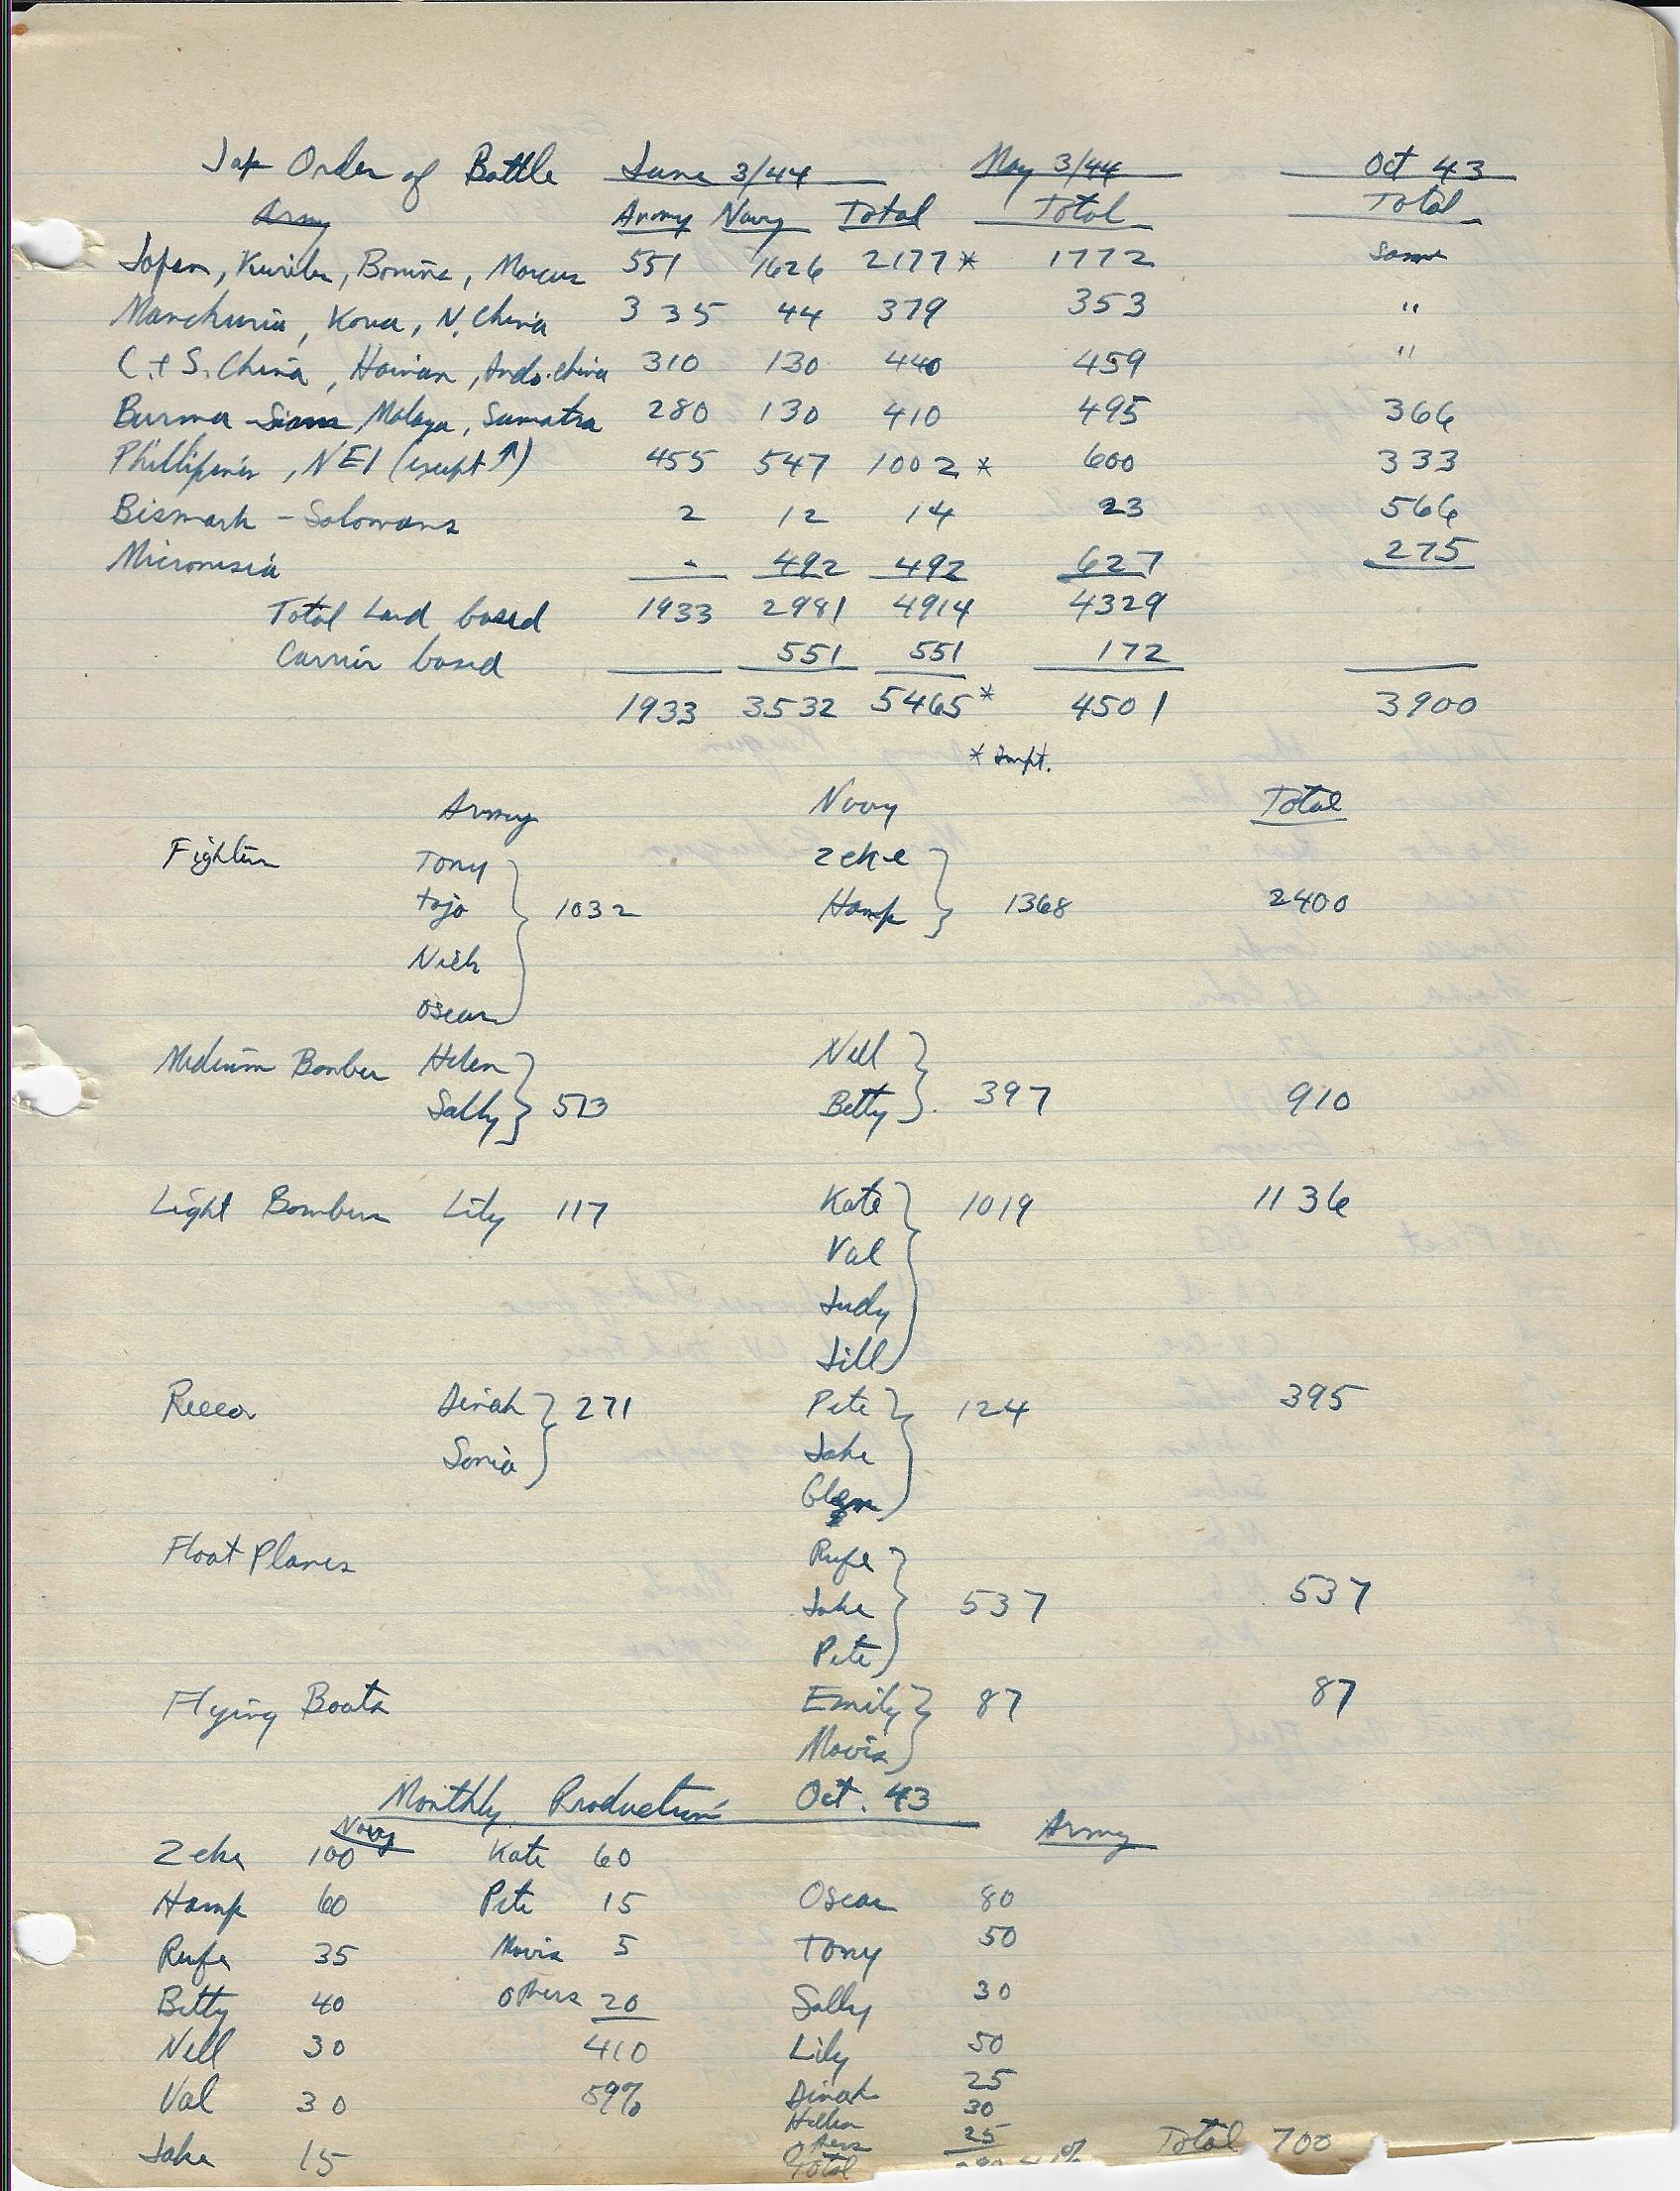 Jap Order of Battle June 3/44 May 3/44 Oct 43
Army Army Navy Total Total Total
Japan, Kuriles, Bonins, Marcus 551 1626 2177* 1772 same
Manchuria, Korea, N. China 335 44 379 353 "
C. + S. China, Hainan, Indo-China 310 130 440 459 "
Burma - Siam Malaya, Sumatra 280 130 410 495 366
Phillipines, NEI (except ↑) 455 547 1002* 600 333
Bismark - Solomons 2 12 14 23 566
Micronesia - 492 492 627 275
Total Land based 1933 2981 4914 4329
Carrier based 551 551 172
1933 3532 5465* 4501 3900
* Impt.
Army Navy Total
Fighters Tony Zeke
Tojo 1032 Hamp 1368 2400
Nick
Oscar
Medium Bomber Helen Nell
Sally 513 Betty 397 910
Light Bombers Lily 117 Kate 1019 1136
Val
Judy
Jill
Recco Dinah 271 Pete 124 395
Sonia Jake
Glen
Float Planes Rufe
Jake 537 537
Pete
Flying Boats Emily 87 87
Mavis
Monthly Production Oct. 43
Navy Army
Zeke 100 Kate 60
Hamp 60 Pete 15 Oscar 80
Rufe 35 Mavis 5 Tony 50
Betty 40 others 20 Sally 30
Nell 30 410 Lily 50
Val 30 59% Dinah 25
Hellen 30
Jake 15 Others 25 Total 700
Total 41%